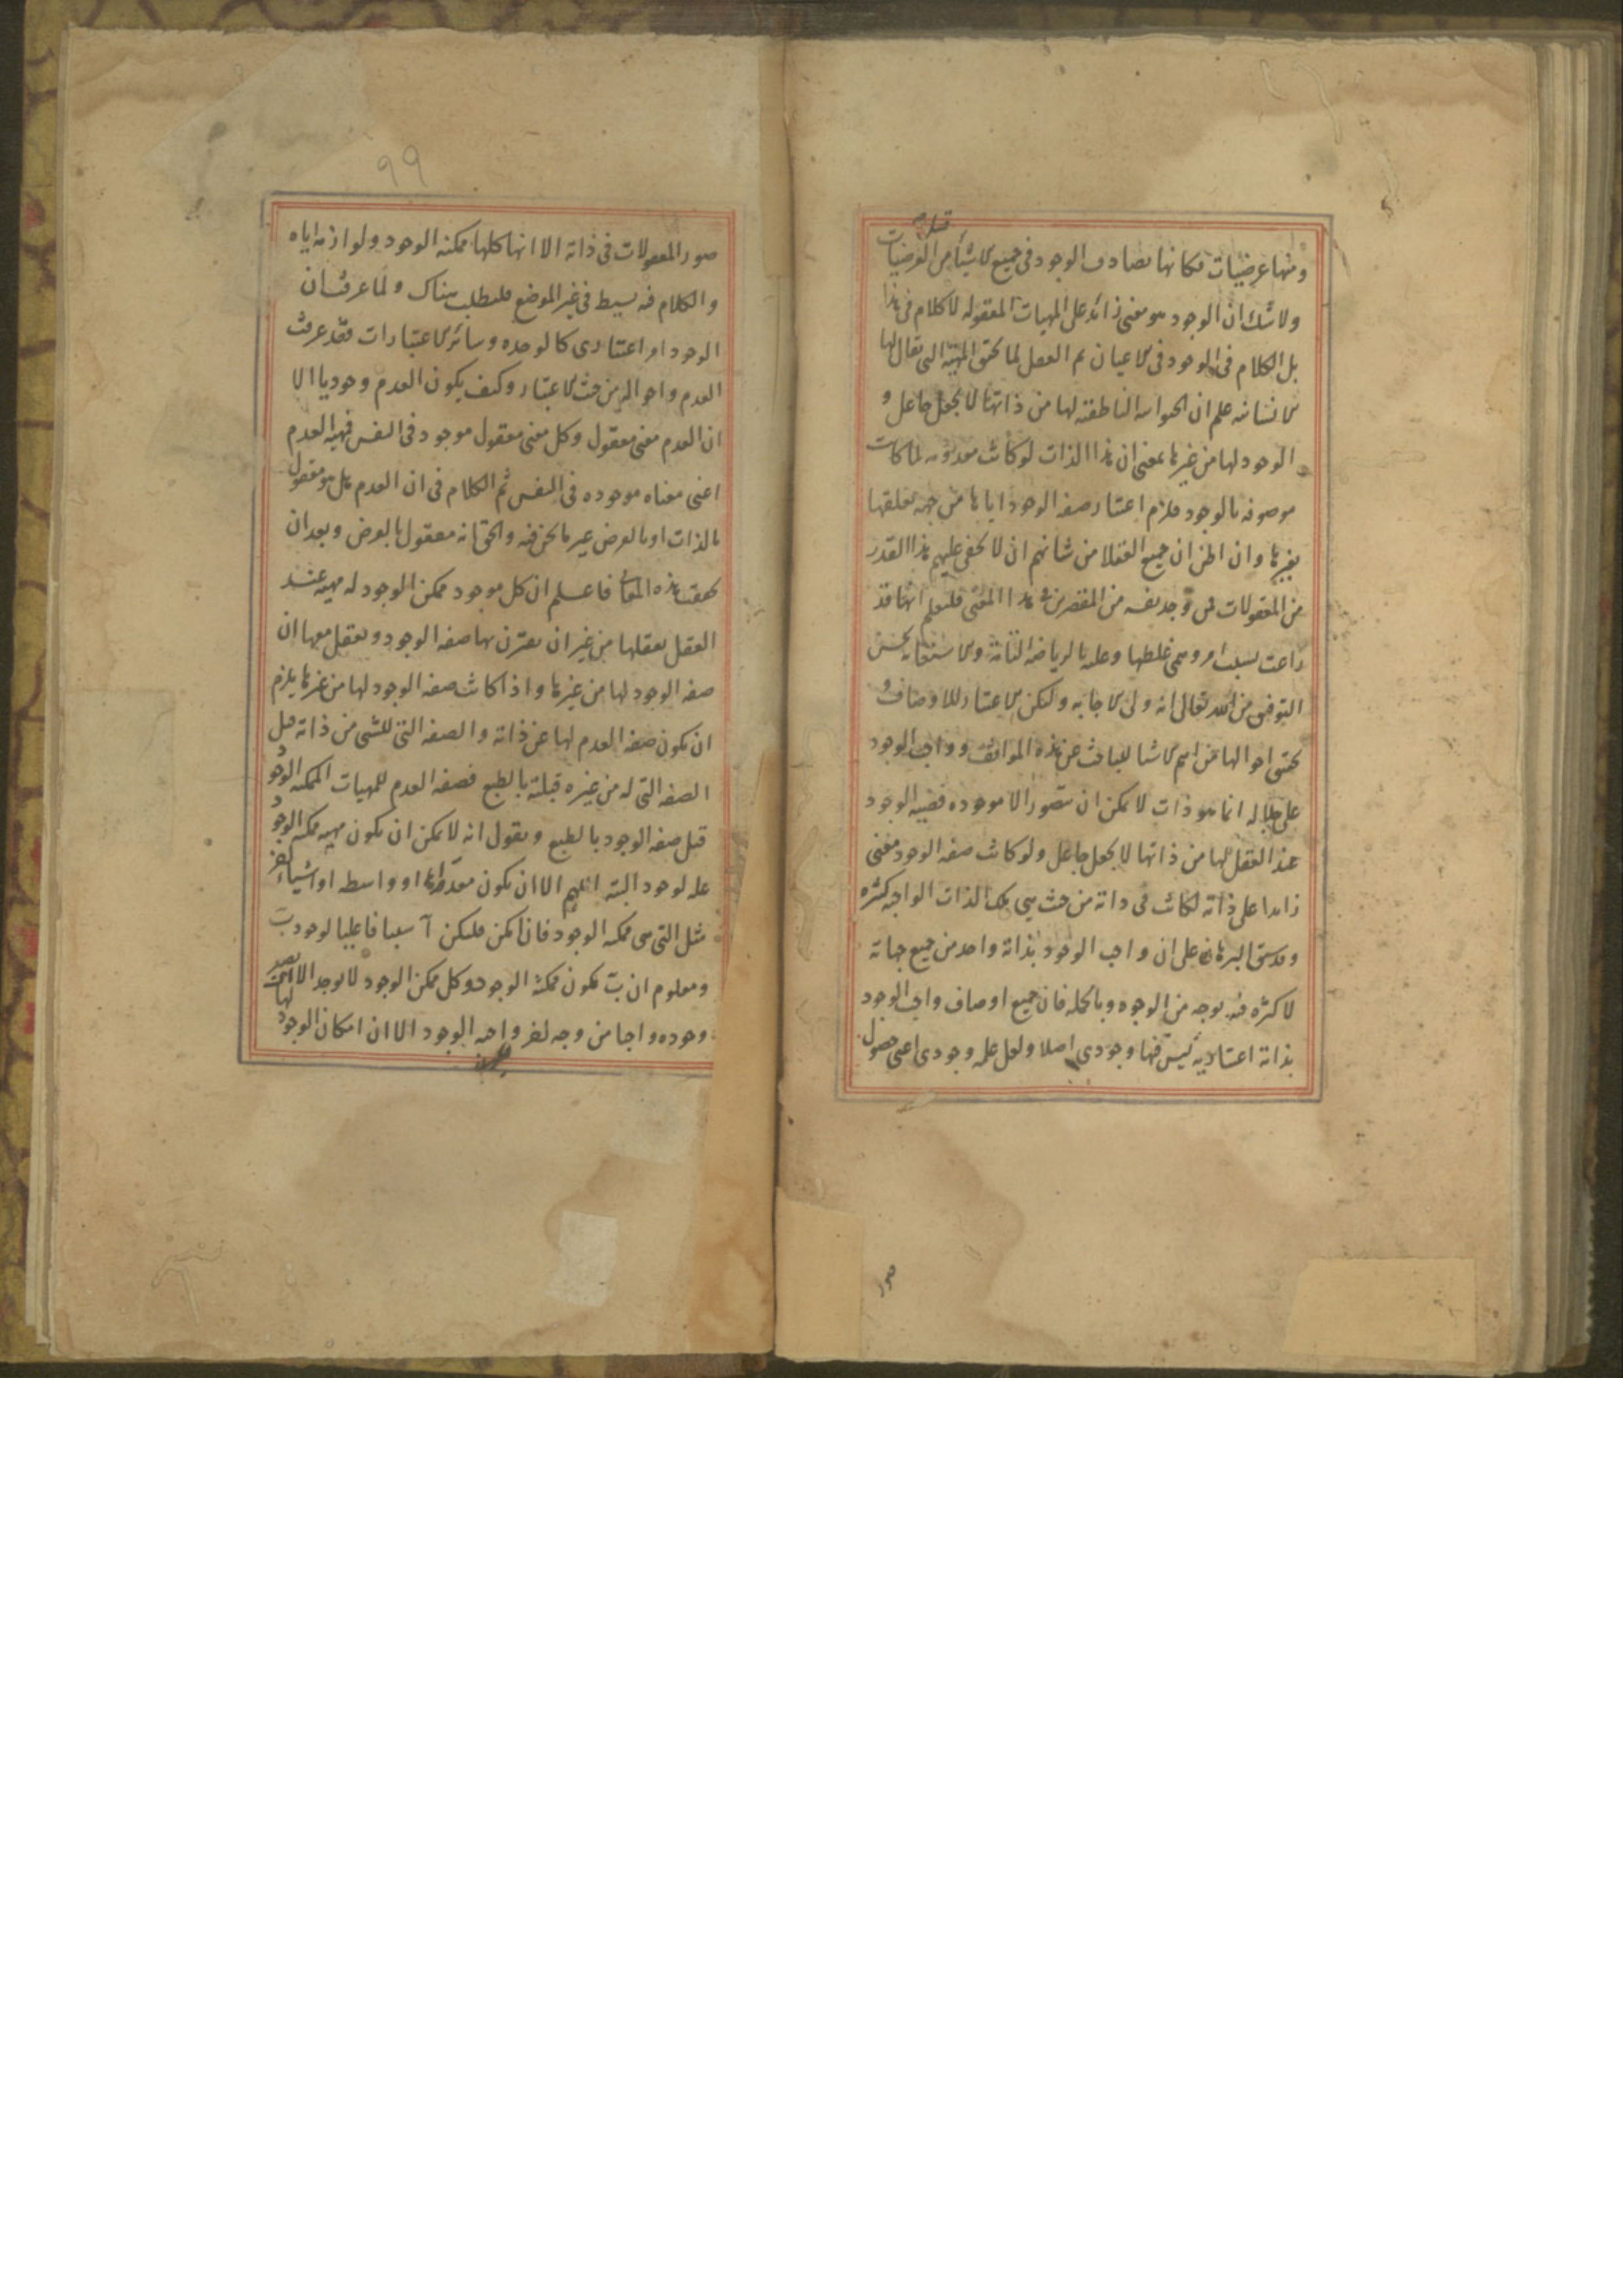 ومنها عرضيات فكانها تصادف الوجود في جميع الاشياء من العرضيات
ولا شك ان الوجود هو معنى زائد على المهيات المعقوله لا كلام في هذا
بل الكلام في الوجود في الاعيان ثم العقل لما تحقق المهيّة التي يقال لها
الانسانيه علم ان الحيوانيه الناطقيه لها من ذاتها لا بجعل جاعل و
الوجود لها من غيرها بمعنى ان هذا الذات لو كانت معدومه لما كانت
موصوفه بالوجود فلزم اعتبار صفه الوجود اياها من جهه تعلقها
بغيرها وان اظن ان جميع العقلا من شانهم ان لا يخفى عليهم هذا القدر
من المعقولات فمن وجد نفسه من المقصرين في هذا المعنى فليعلم انها قد
زاغت بسبب امر وهمي غلطها وعليه بالرياضه التامة والاستعانه بحسن
التوفيق من الله تعالى انه ولي الاجابه ولكن الاعتبار للاوصاف و
تحقق احوالها من اهم الاشيا للباحث عن هذه المواقف وواجب الوجود
على جلاله انما هو ذات لا يمكن ان تتصور الا موجوده فضيه الوجود
عند العقل لها من ذاتها لا بجعل جاعل ولو كانت صفه الوجود معنى
زايدا على ذاته لكانت في ذاته من حيث هي تلك الذات الواجبه كثره
وقد سبق البرهان على ان واجب الوجود بذاته واحد من جميع جهاته
لا كثره فيه بوجه من الوجوه وبالجمله فان جميع اوصاف واجب الوجود
بذاته اعتباريه ليس فيها وجودي اصلا ولعل علمه وجودي اعني حصول
صور
٩٩
صور المعقولات في ذاته الا انها كلها ممكنه الوجود ولوازمه اياه
والكلام فيه بسيط في غير الموضع فليطلب هناك ولما عرفت ان
الوجود امر اعتباري كالوحده وسائر الاعتبارات فقد عرفت
العدم واحواله من حيث الاعتبار وكيف يكون العدم وجوديا الا
ان العدم معنى معقول وكل معنى معقول موجود في النفس فمهيه العدم
اعني معناه موجوده في النفس ثم الكلام في ان العدم هل هو معقول
بالذات او بالعرض غير ما نحن فيه والحق انه معقول بالعرض وبعد ان
تحققت هذه المعاني فاعلم ان كل موجود ممكن الوجود له مهيه عند
العقل يعقلها من غير ان يقترن بها صفه الوجود ويعقل معها ان
صفه الوجود لها من غيرها واذا كانت صفه الوجود لها من غيرها يلزم
ان يكون صفه العدم لها عن ذاته والصفه التي للشي من ذاته قبل
الصفه التي له من غيره قبلية بالطبع فصفه العدم للمهيات الممكنه الوجود
قبل صفه الوجود بالطبع ونقول انه لا يمكن ان يكون مهيه ممكنه الوجود
عله لوجود البته اللهم الا ان يكون معدة او واسطه او اشياء اخر
مثل التي هي ممكنه الوجود فان امكن فليكن آ سببا فاعليا لوجود ب
ومعلوم ان ب يكون ممكنه الوجود وكل ممكن الوجود لا يوجد الا
وجوده واجبا من وجه لغير واجبه الوجود الا ان امكان الوجود لها